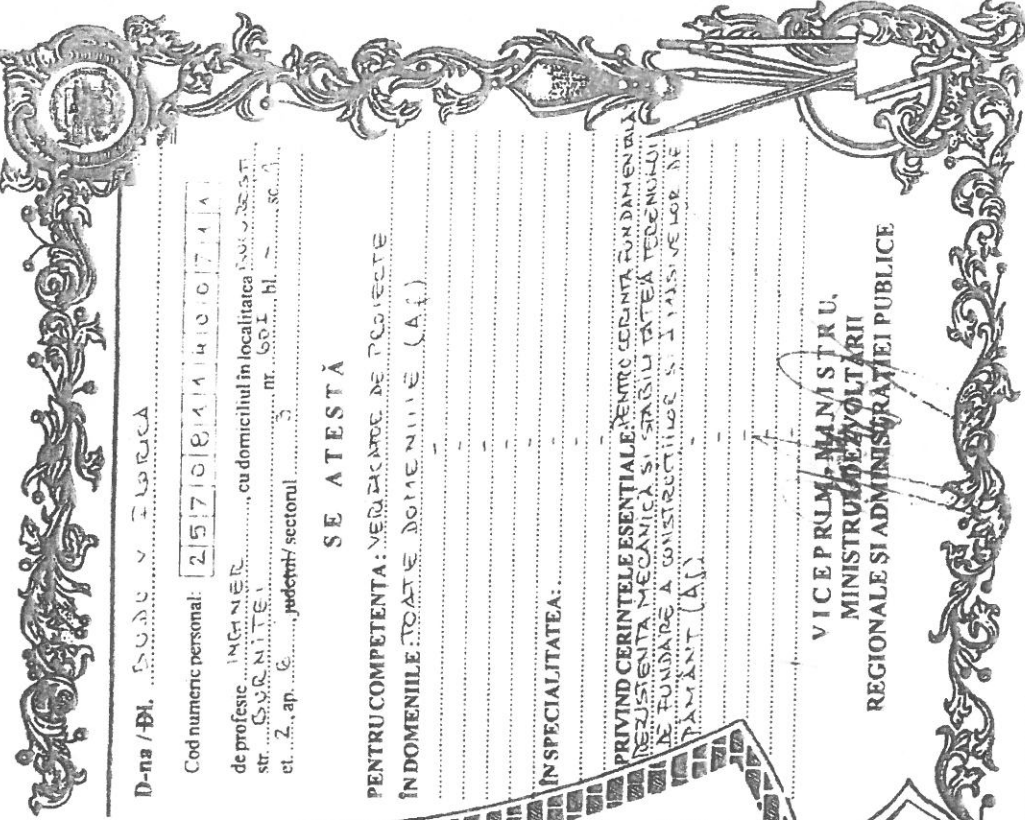 D-na / Dl. V FLORICA
Cod numeric personal: 2 5 7 0 8 1 1 4 0 0 7 1 1
de profesie INGINER cu domiciliul în localitatea
str. GURNITEI nr. 60I bl. - sc. 1
et. 2 ap. 6 județul/sectorul 3
SE ATESTĂ
PENTRU COMPETENTA: VERIFICATOR DE PROIECTE
ÎN DOMENIILE: TOATE DOMENIILE (Af)
ÎN SPECIALITATEA:
PRIVIND CERINTELE ESENTIALE: PENTRU CERINTA FUNDAMENTALĂ
REZISTENTA MECANICĂ SI STABILITATEA TERENULUI
DE FUNDARE A CONSTRUCTIILOR SI MASIVELOR DE
PĂMÂNT (Af)
VICEPRIM-MINISTRU,
MINISTRUL DEZVOLTĂRII
REGIONALE ȘI ADMINISTRAȚIEI PUBLICE